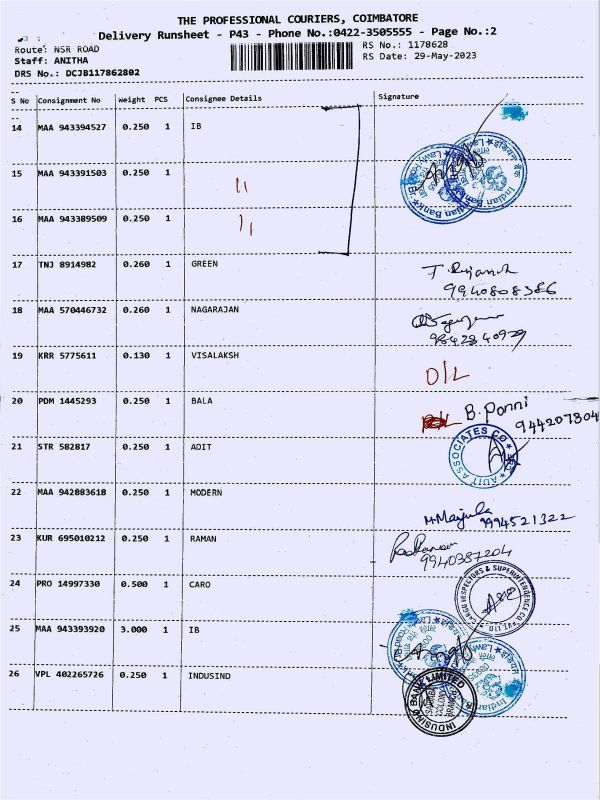 THE PROFESSIONAL COURIERS, COIMBATORE
Delivery Runsheet - P43 - Phone No.:0422-3505555 - Page No.:2
Route: NSR ROAD
RS No.: 1178628
Staff: ANITHA
RS Date: 29-May-2023
DRS No.: DCJB117862802
S No Consignment No Weight PCS Consignee Details Signature
14 MAA 943394527 0.250 1 IB
15 MAA 943391503 0.250 1 "
16 MAA 943389509 0.250 1 "
Indian Bank
17 TNJ 8914982 0.260 1 GREEN
9940808386
18 MAA 570446732 0.260 1 NAGARAJAN
9842840979
19 KRR 5775611 0.130 1 VISALAKSH
D/L
20 PDM 1445293 0.250 1 BALA
B. Ponni
944207804
21 STR 582817 0.250 1 ADIT
ASSOCIATES CO
22 MAA 942883618 0.250 1 MODERN
M. Manjula
9994521322
23 KUR 695010212 0.250 1 RAMAN
9940387204
24 PRO 14997330 0.500 1 CARO
CARGO INSPECTORS & SUPERINTENDENCE CO. PVT. LTD.
25 MAA 943393920 3.000 1 IB
26 VPL 402265726 0.250 1 INDUSIND
INDUSIND BANK LIMITED